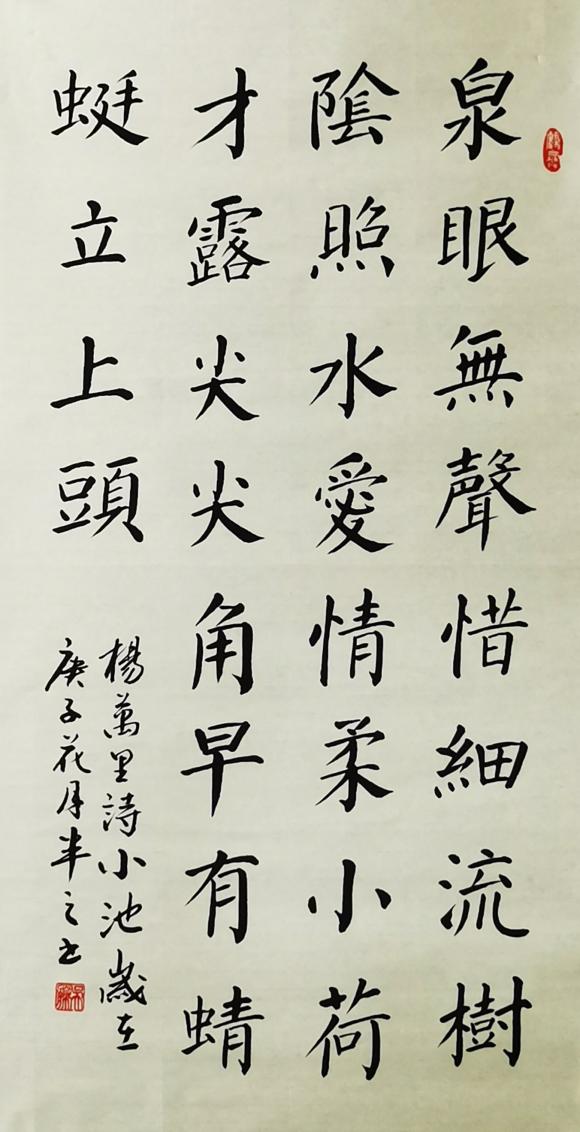 泉眼無聲惜細流樹
陰照水愛情柔小荷
才露尖尖角早有蜻
蜓立上頭
楊萬里詩小池歲在
庚子花月半之书